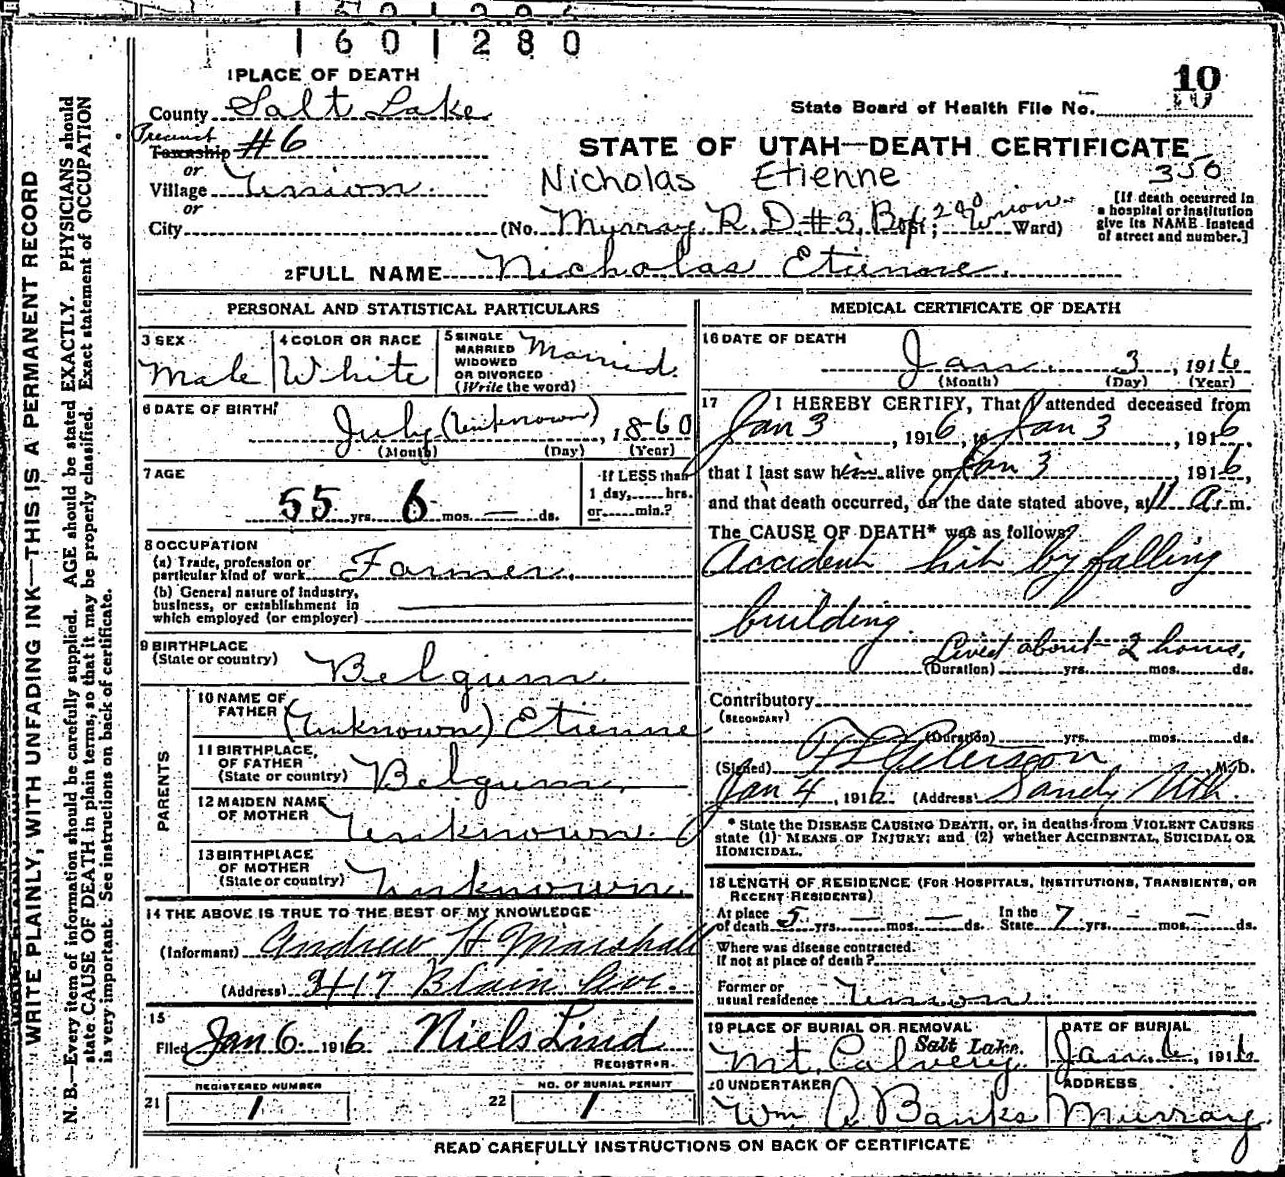 1 6 0 1 2 8 0
10
1 PLACE OF DEATH
County Salt Lake
State Board of Health File No.
Precinct
Township #6
or
Village Union
or
City
STATE OF UTAH—DEATH CERTIFICATE
Nicholas Etienne
350
(No. Murray R.D. #3, Box 280 Union St; Ward)
[If death occurred in
a hospital or institution
give its NAME instead
of street and number.]
2 FULL NAME Nicholas Etienne
PERSONAL AND STATISTICAL PARTICULARS
3 SEX
Male
4 COLOR OR RACE
White
5 SINGLE
MARRIED
WIDOWED
OR DIVORCED
(Write the word)
Married
6 DATE OF BIRTH
July (Unknown), 1860
(Month) (Day) (Year)
7 AGE
55 yrs. 6 mos. — ds.
If LESS than
1 day, hrs.
or min.?
8 OCCUPATION
(a) Trade, profession or
particular kind of work Farmer
(b) General nature of industry,
business, or establishment in
which employed (or employer)
9 BIRTHPLACE
(State or country) Belgum
PARENTS
10 NAME OF
FATHER (Unknown) Etienne
11 BIRTHPLACE
OF FATHER
(State or country) Belgum
12 MAIDEN NAME
OF MOTHER Unknown
13 BIRTHPLACE
OF MOTHER
(State or country) Unknown
14 THE ABOVE IS TRUE TO THE BEST OF MY KNOWLEDGE
(Informant) Andrew H Marshall
(Address) 3417 Blain Ave.
15
Filed Jan 6 1916 Niels Lind
REGISTRAR
REGISTERED NUMBER
21 1
NO. OF BURIAL PERMIT
22 1
MEDICAL CERTIFICATE OF DEATH
16 DATE OF DEATH
Jan. 3, 1916
(Month) (Day) (Year)
17 I HEREBY CERTIFY, That I attended deceased from
Jan 3, 1916, to Jan 3, 1916,
that I last saw him alive on Jan 3, 1916,
and that death occurred, on the date stated above, at 11 A.m.
The CAUSE OF DEATH* was as follows:
Accident hit by falling
building
Lived about 2 hours.
(Duration) yrs. mos. ds.
Contributory
(SECONDARY)
(Duration) yrs. mos. ds.
(Signed) Peterson M.D.
Jan 4, 1916 (Address) Sandy Utah.
* State the DISEASE CAUSING DEATH, or, in deaths from VIOLENT CAUSES
state (1) MEANS OF INJURY; and (2) whether ACCIDENTAL, SUICIDAL OR
HOMICIDAL.
18 LENGTH OF RESIDENCE (FOR HOSPITALS, INSTITUTIONS, TRANSIENTS, OR
RECENT RESIDENTS)
At place
of death 5 yrs. — mos. — ds. In the
State 7 yrs. — mos. — ds.
Where was disease contracted.
if not at place of death?
Former or
usual residence Union
19 PLACE OF BURIAL OR REMOVAL
Salt Lake.
Mt. Calvery
DATE OF BURIAL
Jan. 6, 1916
20 UNDERTAKER
Wm A Banks
ADDRESS
Murray
READ CAREFULLY INSTRUCTIONS ON BACK OF CERTIFICATE
WRITE PLAINLY, WITH UNFADING INK—THIS IS A PERMANENT RECORD
N. B.—Every item of information should be carefully supplied. AGE should be stated EXACTLY. PHYSICIANS should
state CAUSE OF DEATH in plain terms, so that it may be properly classified. Exact statement of OCCUPATION
is very important. See instructions on back of certificate.